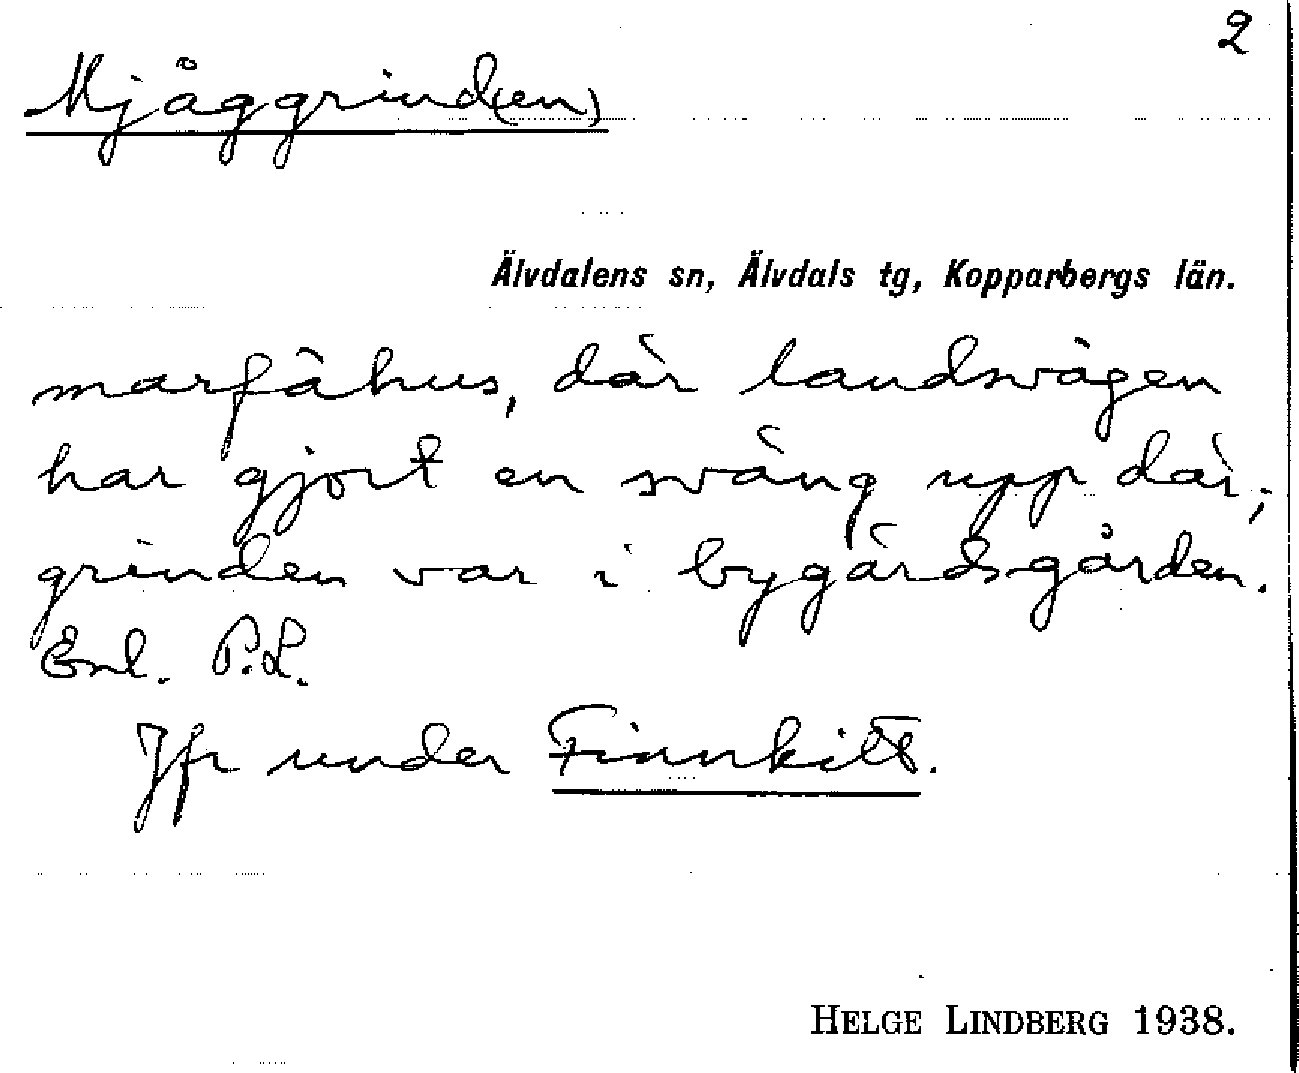 2
Mjåggrind(en)
Älvdalens sn, Älvdals tg, Kopparbergs län.
marfähus, där landsvägen
har gjort en sväng upp där;
grinden var i bygärdsgården.
Enl. P.L.
Jfr under Finnkitt.
HELGE LINDBERG 1938.